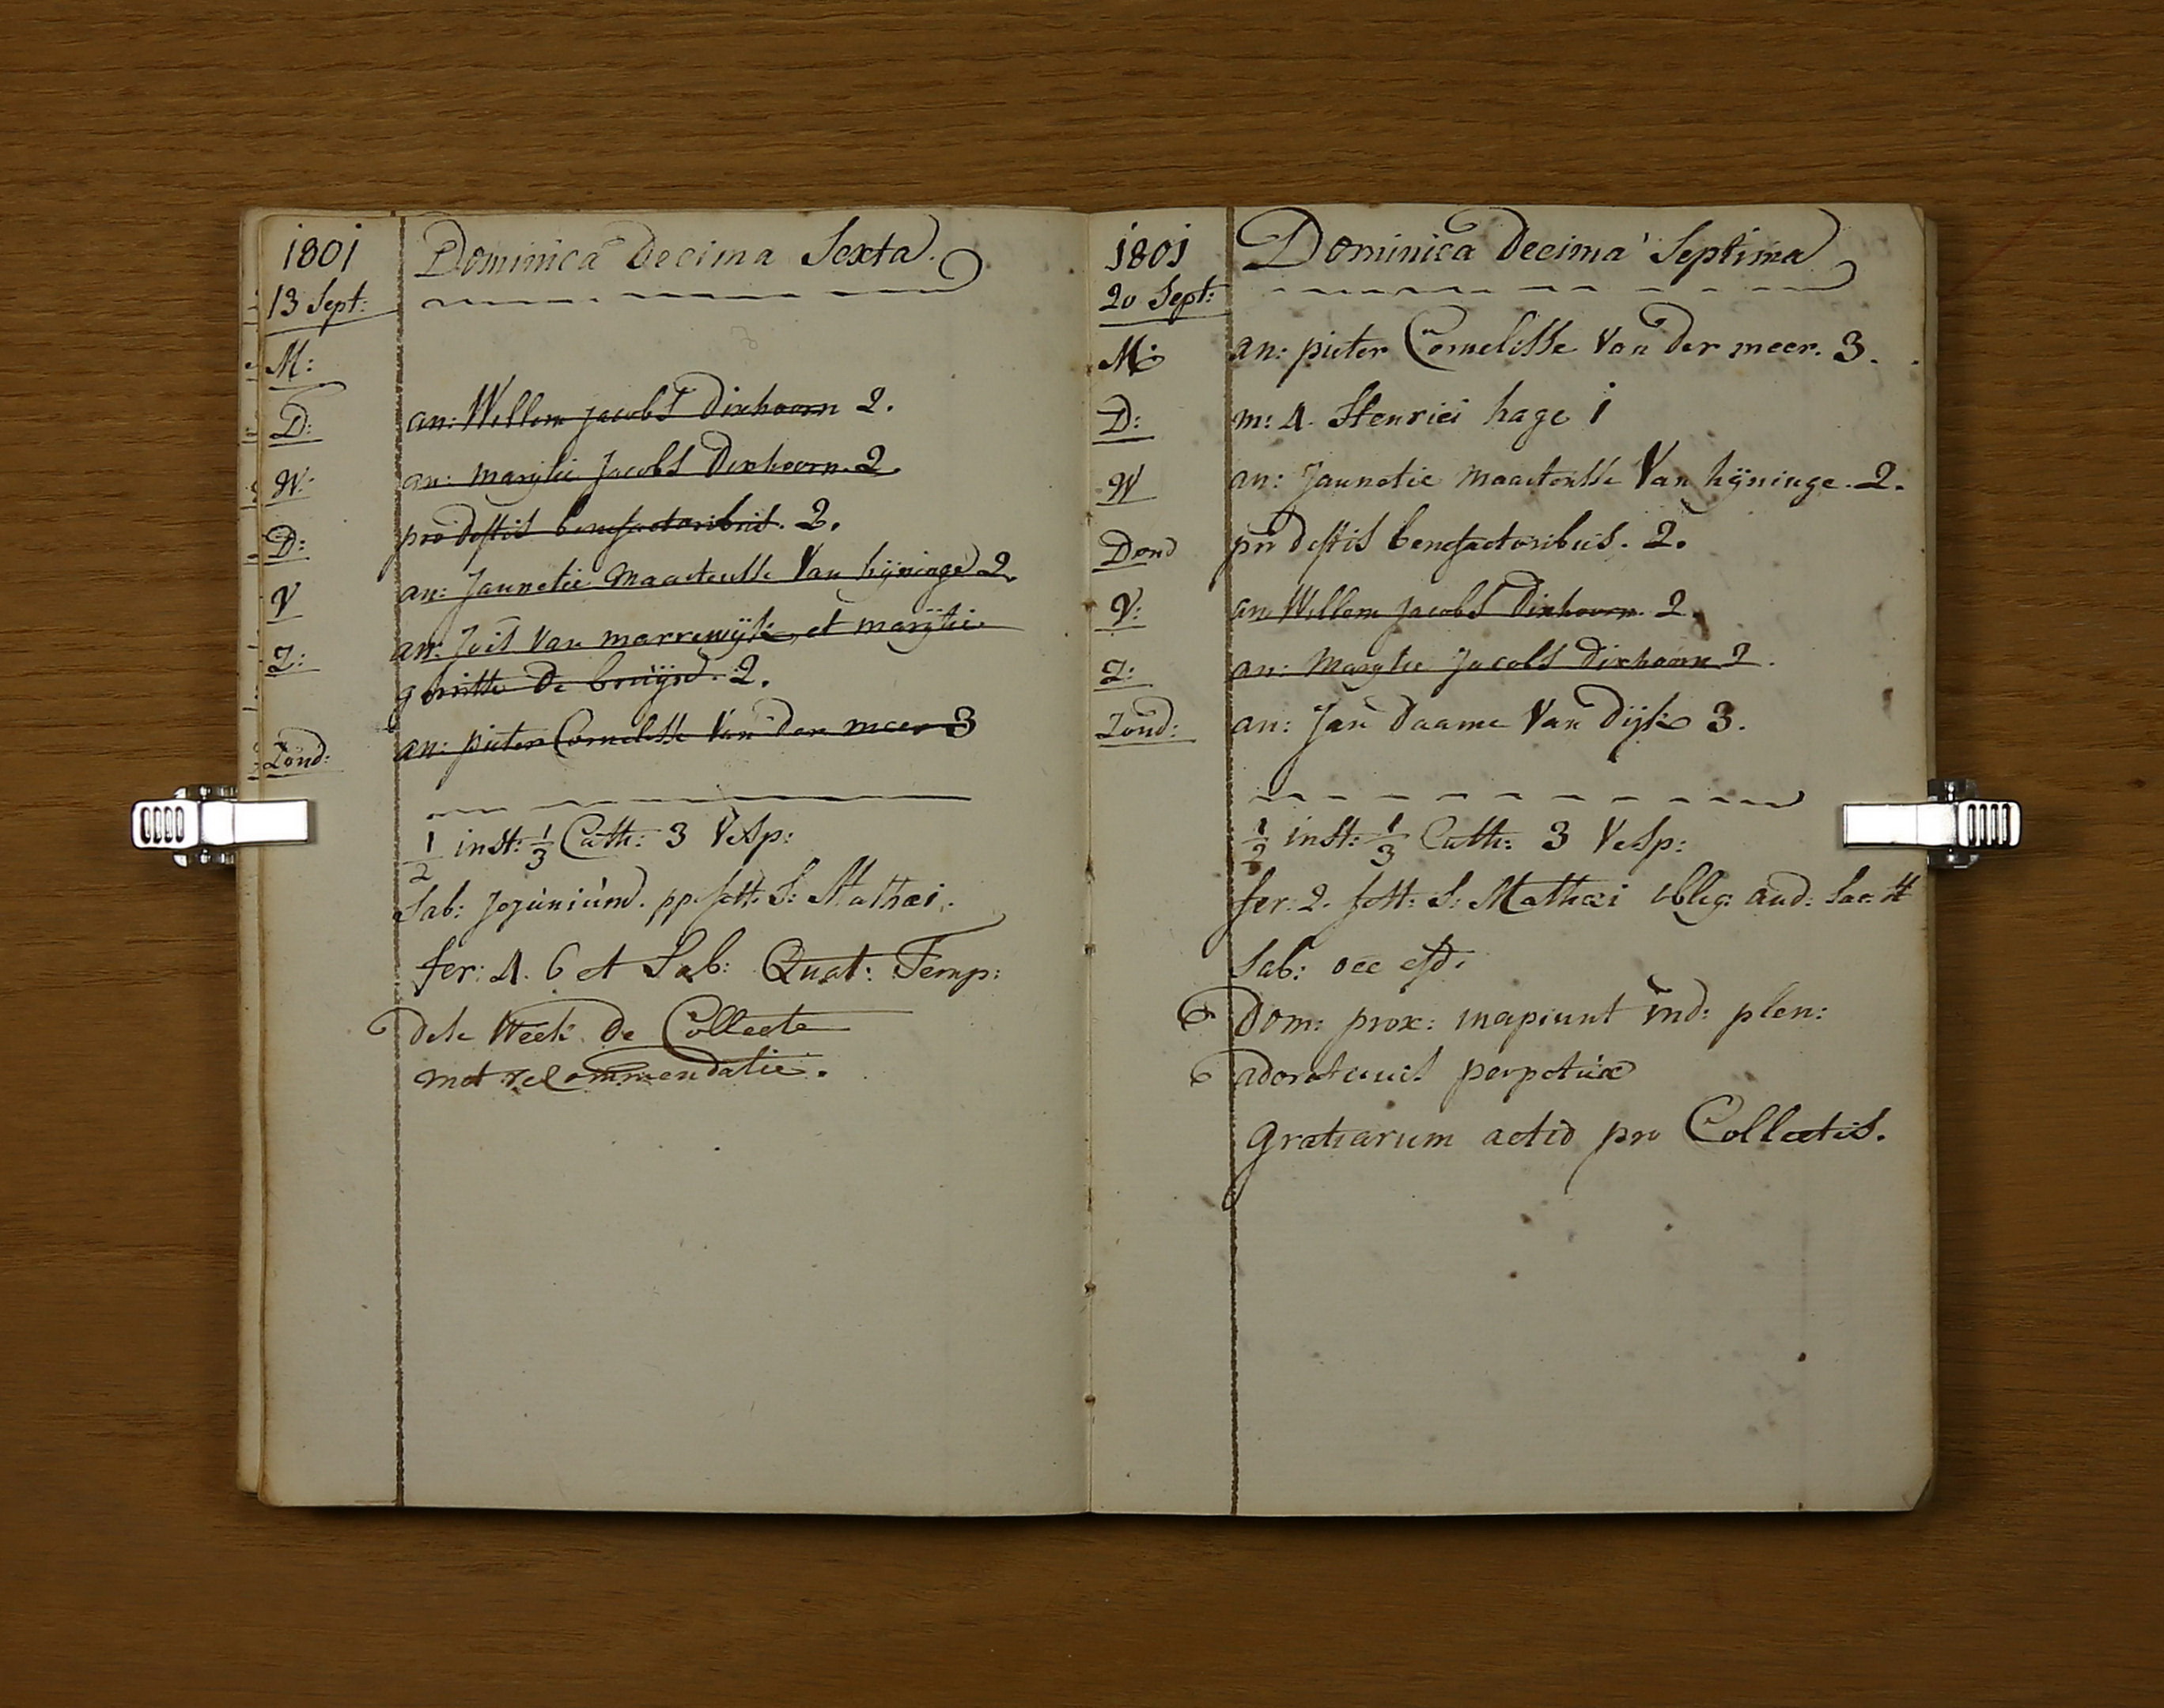 1801
13 Sept:
Dominica Decima Sexta.
M:
D: an: Willem jacobs Dirhoorn 2.
W: an: marijtie Jacobs Dirhoorn. 2.
D: pro deftis benefactoribus. 2.
V an: Jannetie Maertensse Van hijninge 2.
Z: an: Jois Van marrewijk, et marijtie
gerritse De bruijn. 2.
Zond: an: pieter Cornelisse Van der meer 3
1/2 inst: 1/3 Cath: 3 Vesp:
Sab: Jejunium. pp. festt. S: Mathæi.
fer: 4. 6 et Sab: Quat: Temp:
dese Week de Collecte
met recommendatie.
1801
20 Sept:
Dominica Decima Septima
M: an: pieter Cornelisse Van der meer. 3.
D: m: 4. Henrici hage 1
W an: Jannetie Maertensse Van hijninge. 2.
Dond pro deftis benefactoribus. 2.
V: an. Willem jacobs Dirhoorn. 2.
Z: an: Marijtie Jacobs Dirhoorn 2.
Zond: an: Jan Daame Van Dijk 3.
1/2 inst: 1/3 Cath: 3 Vesp:
fer: 2. festt: S: Mathæi oblig: aud: Sac:
Sab: occ
Dom: prox: incipiunt ind: plen:
adorationis perpetuæ
Gratiarum actio pro Collectis.